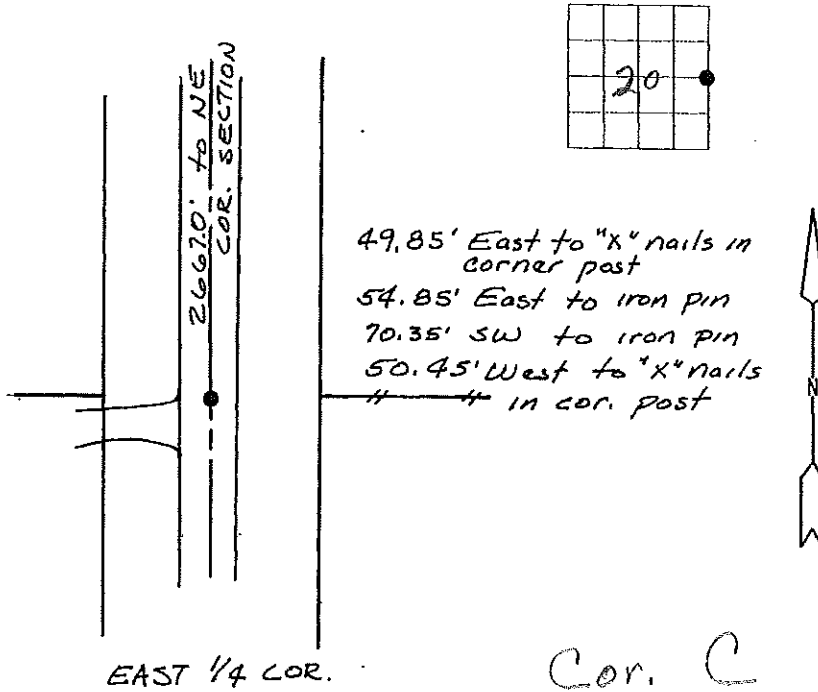 20
2667.0' to NE
COR. SECTION
49.85' East to "X" nails in
corner post
54.85' East to iron pin
70.35' SW to iron pin
50.45' West to "X" nails
in cor. post
N
EAST 1/4 COR.
Cor. C